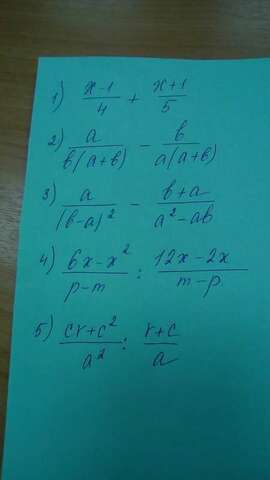 1) (x-1)/4 + (x+1)/5
2) a/(b(a+b)) - b/(a(a+b))
3) a/(b-a)² - (b+a)/(a²-ab)
4) (6x-x²)/(p-m) : (12x-2x)/(m-p)
5) (cr+c²)/a² : (r+c)/a